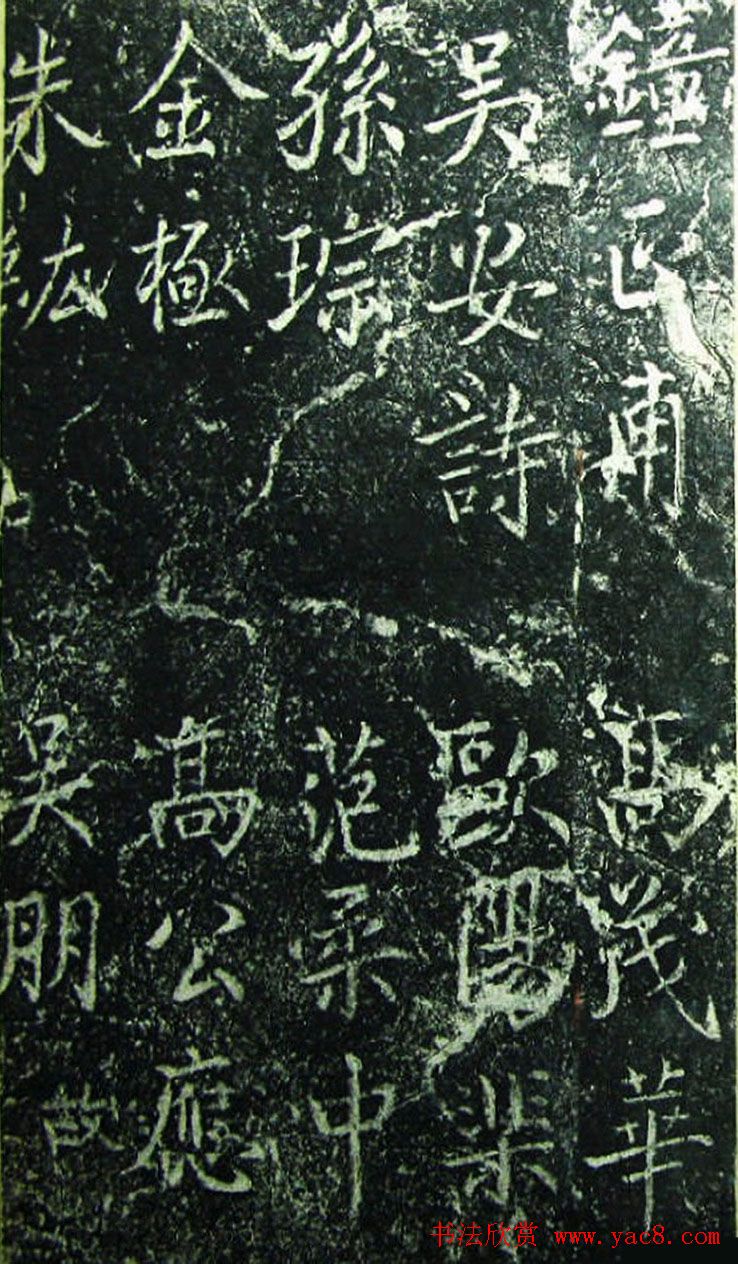 鐘正甫 高茂華
吳安詩 歐陽棐
孫琮 范柔中
金極 高公應
朱紘 吳朋 故
书法欣赏 www.yac8.com